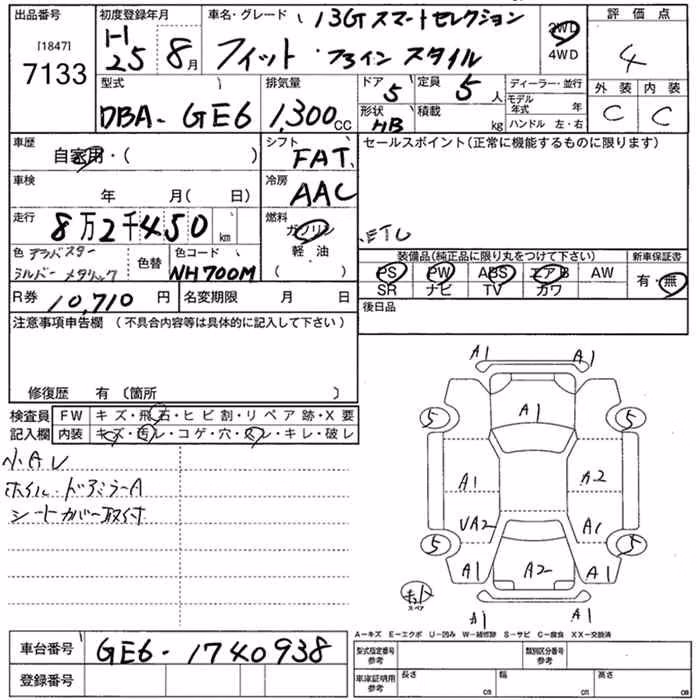 出品番号 初度登録年月 車名・グレード 13G スマートセレクション 評価点
[1847]
7133 H25 8月 フィット ファイン スタイル 2WD 4WD 4
型式 排気量 ドア 5 定員 5人 ディーラー・並行 外装 内装
DBA- GE6 1,300cc 形状 HB 積載 kg モデル年式 年 ハンドル 左・右 C C
車歴 自家用・( ) シフト FAT セールスポイント(正常に機能するものに限ります)
車検 年 月( 日) 冷房 AAC
走行 8万2千450km 燃料 ガソリン 軽油 ( ) ETC
色 アラバスターシルバーメタリック 色替 色コード NH700M 装備品(純正品に限り丸をつけて下さい) 新車保証書
PS PW ABS エアB AW 有・無
SR ナビ TV カワ
R券 10,710円 名変期限 月 日 後日品
注意事項申告欄 (不具合内容等は具体的に記入して下さい)
修復歴 有 〔箇所 〕
検査員 FW キズ・飛石・ヒビ割・リペア跡・X要
記入欄 内装 キズ・汚レ・コゲ・穴・スレ・キレ・破レ
小A レ
ホイル・ドアミラーA
シートカバー取付
A1 A1 A1
5 A1 5
A1 A2
UA2 A1
5 5
A1 A2 A1
スペア
A1 A1
A－キズ E－エクボ U－凹み W－補修跡 S－サビ C－腐食 XX－交換済
車台番号 GE6-1740938 型式指定番号 参考 類別区分番号 参考
登録番号 車庫証明用 参考 長さ cm 幅 cm 高さ cm